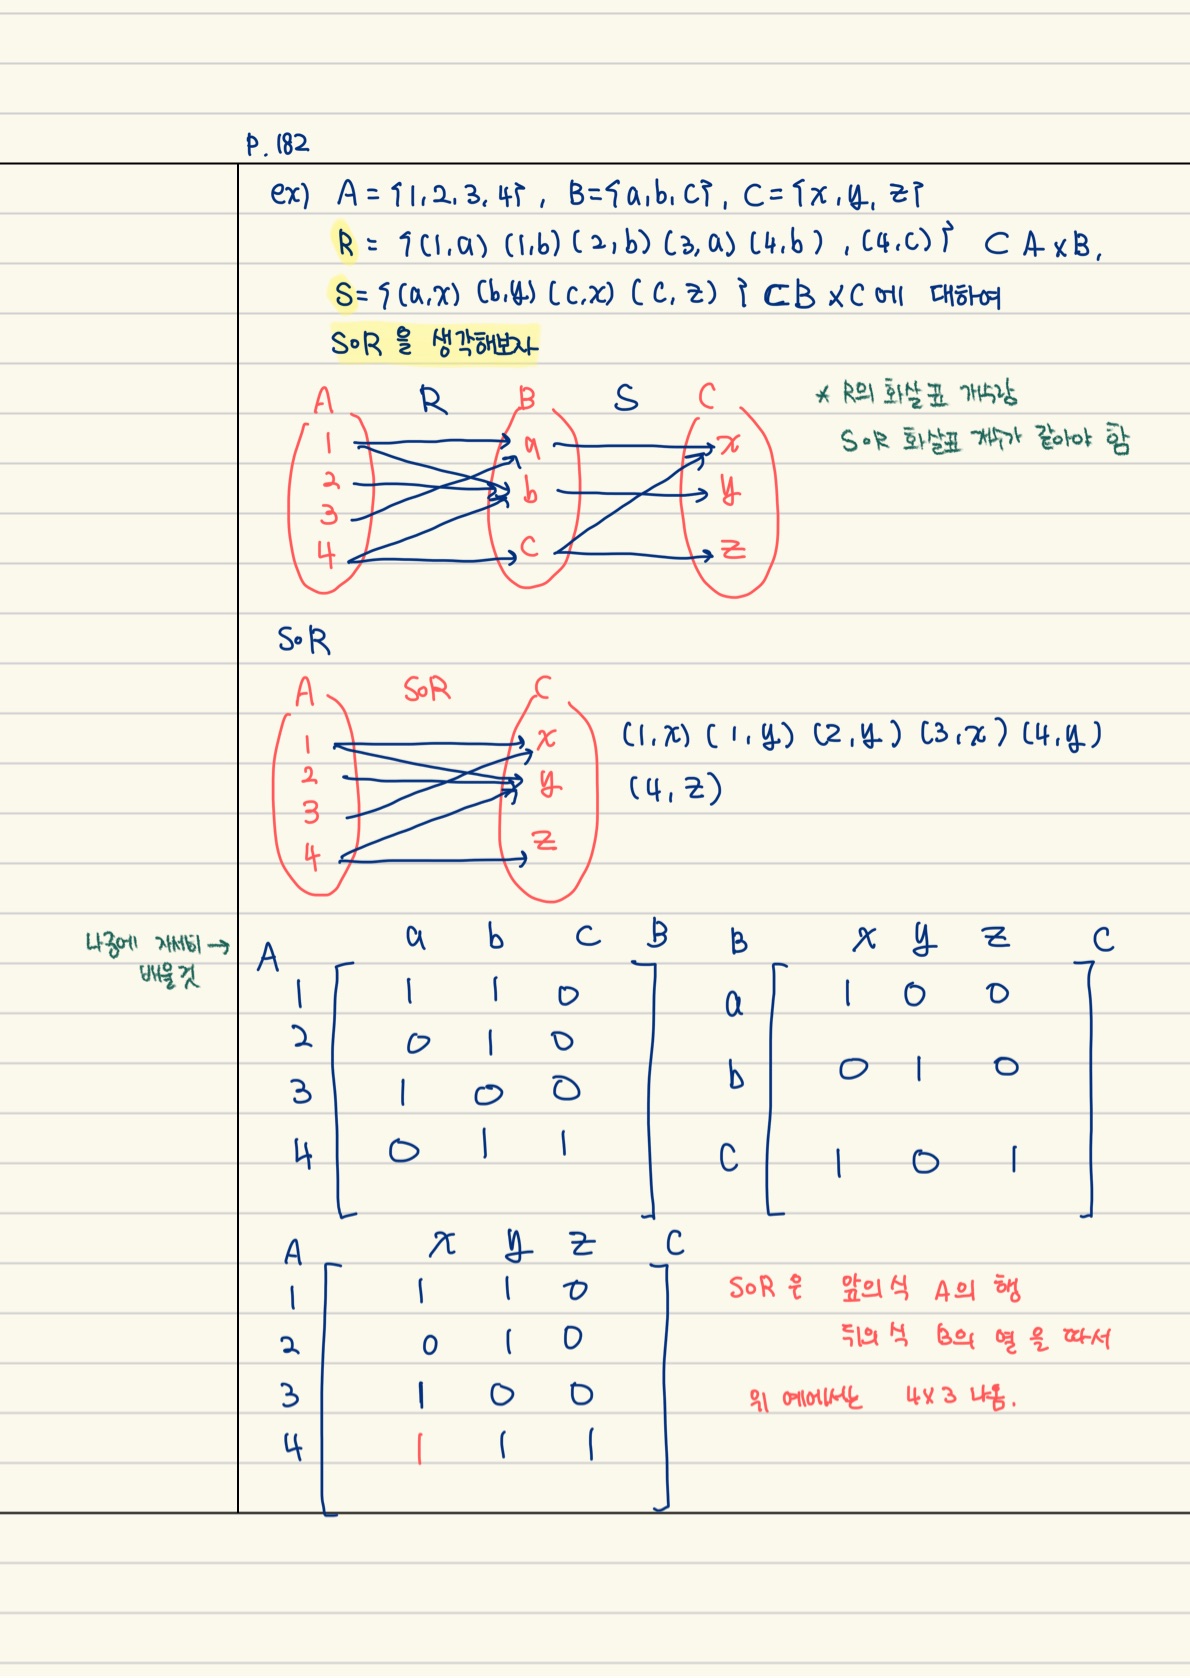 P. 182
ex) A = {1, 2, 3, 4}, B={a, b, c}, C={x, y, z}
R = {(1,a) (1,b) (2,b) (3,a) (4,b), (4,c)} ⊂ A×B,
S={(a,x) (b,y) (c,x) (c,z)} ⊂B×C에 대하여
S∘R을 생각해보자
A R B S C
* R의 화살표 개수랑
S∘R 화살표 개수가 같아야 함
1 a x
2 b y
3
4 c z
S∘R
A S∘R C
1 x
2 y
3
4 z
(1,x) (1,y) (2,y) (3,x) (4,y)
(4,z)
나중에 자세히 →
배울 것
A a b c B
1 1 1 0
2 0 1 0
3 1 0 0
4 0 1 1
B x y z C
a 1 0 0
b 0 1 0
c 1 0 1
A x y z C
1 1 1 0
2 0 1 0
3 1 0 0
4 1 1 1
S∘R은 앞의식 A의 행
뒤의식 B의 열을 따서
위 예에서는 4×3 나옴.